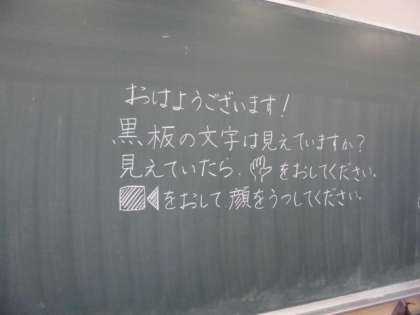 おはようございます!
黒板の文字は見えていますか?
見えていたら、をおしてください。
をおして顔をうつしてください。